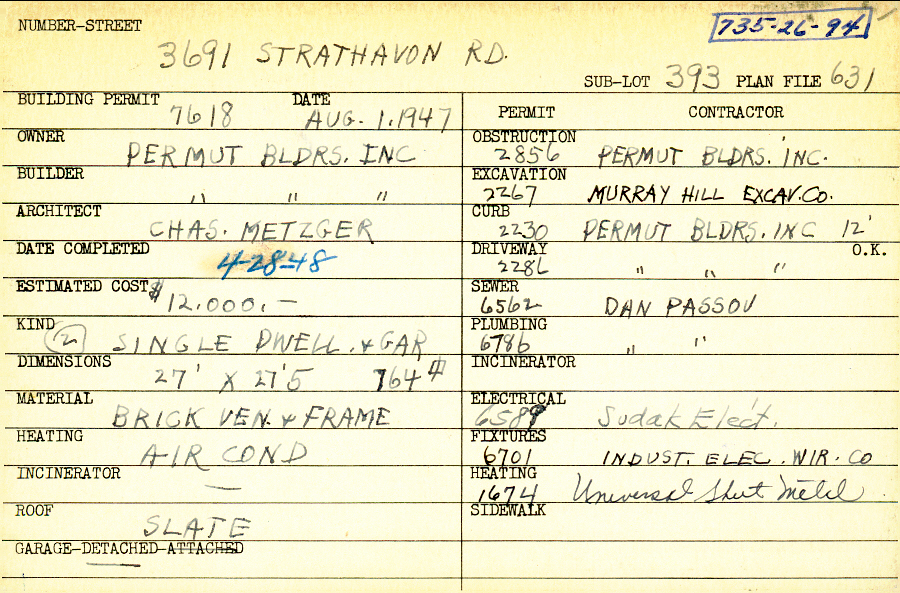 NUMBER-STREET
735-26-94
3691 STRATHAVON RD.
SUB-LOT 393 PLAN FILE 631
BUILDING PERMIT 7618 DATE AUG. 1. 1947
OWNER PERMUT BLDRS. INC
BUILDER " " "
ARCHITECT CHAS. METZGER
DATE COMPLETED 4-28-48
ESTIMATED COST $12.000.-
KIND (2) SINGLE DWELL. & GAR
DIMENSIONS 27' X 27'5 764
MATERIAL BRICK VEN. & FRAME
HEATING AIR COND
INCINERATOR —
ROOF SLATE
GARAGE-DETACHED-ATTACHED
PERMIT CONTRACTOR
OBSTRUCTION 2856 PERMUT BLDRS. INC.
EXCAVATION 2267 MURRAY HILL EXCAV. CO.
CURB 2230 PERMUT BLDRS. INC 12'
DRIVEWAY 2286 " " " O.K.
SEWER 6562 DAN PASSOV
PLUMBING 6786 " "
INCINERATOR
ELECTRICAL 6589 Sudak Elect.
FIXTURES 6701 INDUST. ELEC. WIR. CO
HEATING 1674 Universal Sheet Metal
SIDEWALK